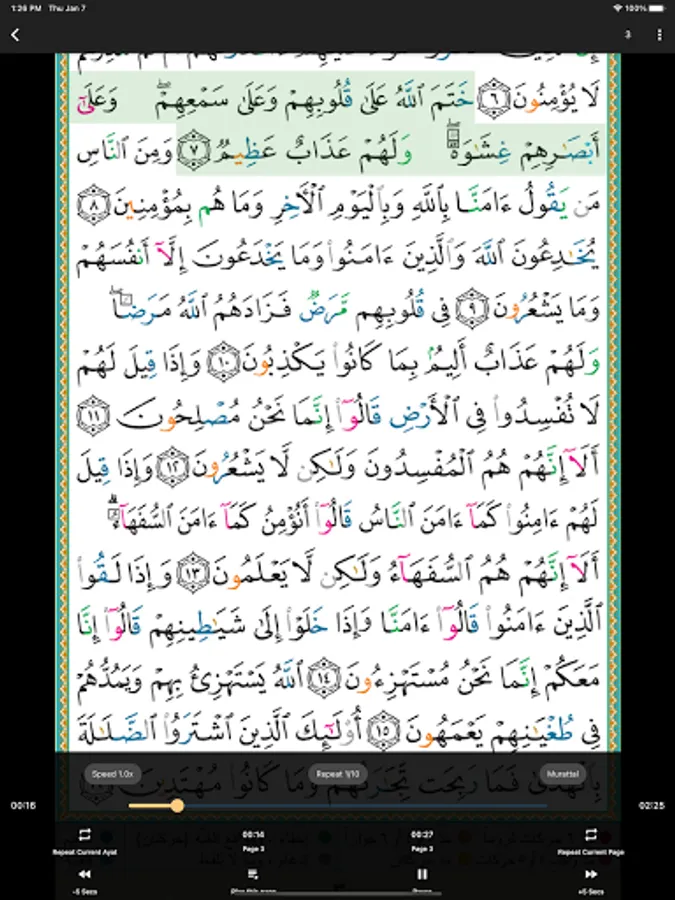 1:26 PM Thu Jan 7
100%
3
لَا يُؤْمِنُونَ ٦ خَتَمَ ٱللَّهُ عَلَىٰ قُلُوبِهِمْ وَعَلَىٰ سَمْعِهِمْ ۖ وَعَلَىٰٓ
أَبْصَٰرِهِمْ غِشَٰوَةٌ ۖ وَلَهُمْ عَذَابٌ عَظِيمٌ ٧ وَمِنَ ٱلنَّاسِ
مَن يَقُولُ ءَامَنَّا بِٱللَّهِ وَبِٱلْيَوْمِ ٱلْءَاخِرِ وَمَا هُم بِمُؤْمِنِينَ ٨
يُخَٰدِعُونَ ٱللَّهَ وَٱلَّذِينَ ءَامَنُوا۟ وَمَا يَخْدَعُونَ إِلَّآ أَنفُسَهُمْ
وَمَا يَشْعُرُونَ ٩ فِى قُلُوبِهِم مَّرَضٌ فَزَادَهُمُ ٱللَّهُ مَرَضًا ۖ
وَلَهُمْ عَذَابٌ أَلِيمٌۢ بِمَا كَانُوا۟ يَكْذِبُونَ ١٠ وَإِذَا قِيلَ لَهُمْ
لَا تُفْسِدُوا۟ فِى ٱلْأَرْضِ قَالُوٓا۟ إِنَّمَا نَحْنُ مُصْلِحُونَ ١١
أَلَآ إِنَّهُمْ هُمُ ٱلْمُفْسِدُونَ وَلَٰكِن لَّا يَشْعُرُونَ ١٢ وَإِذَا قِيلَ
لَهُمْ ءَامِنُوا۟ كَمَآ ءَامَنَ ٱلنَّاسُ قَالُوٓا۟ أَنُؤْمِنُ كَمَآ ءَامَنَ ٱلسُّفَهَآءُ ۗ
أَلَآ إِنَّهُمْ هُمُ ٱلسُّفَهَآءُ وَلَٰكِن لَّا يَعْلَمُونَ ١٣ وَإِذَا لَقُوا۟
ٱلَّذِينَ ءَامَنُوا۟ قَالُوٓا۟ ءَامَنَّا وَإِذَا خَلَوْا۟ إِلَىٰ شَيَٰطِينِهِمْ قَالُوٓا۟ إِنَّا
مَعَكُمْ إِنَّمَا نَحْنُ مُسْتَهْزِءُونَ ١٤ ٱللَّهُ يَسْتَهْزِئُ بِهِمْ وَيَمُدُّهُمْ
فِى طُغْيَٰنِهِمْ يَعْمَهُونَ ١٥ أُو۟لَٰٓئِكَ ٱلَّذِينَ ٱشْتَرَوُا۟ ٱلضَّلَٰلَةَ
بِٱلْهُدَىٰ فَمَا رَبِحَت تِّجَٰرَتُهُمْ وَمَا كَانُوا۟ مُهْتَدِينَ
Speed 1.0x Repeat 1/10 Murattal
00:16 02:25
00:14 00:27
Repeat Current Ayat Page 3 Page 3 Repeat Current Page
-5 Secs +5 Secs